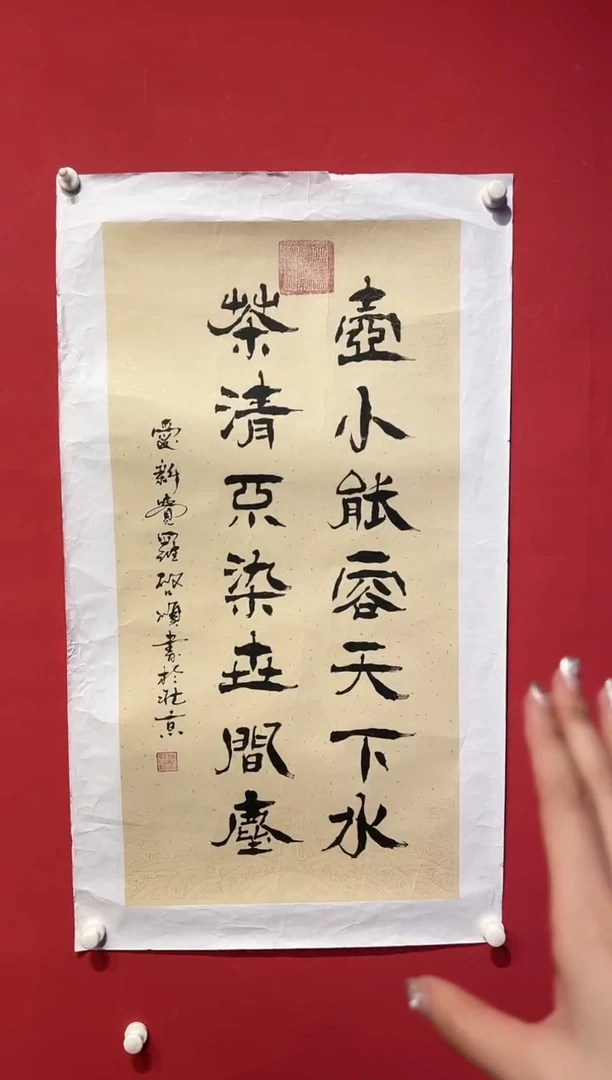 壺小能容天下水
茶清不染世間塵
愛新覺羅啟順書於北京